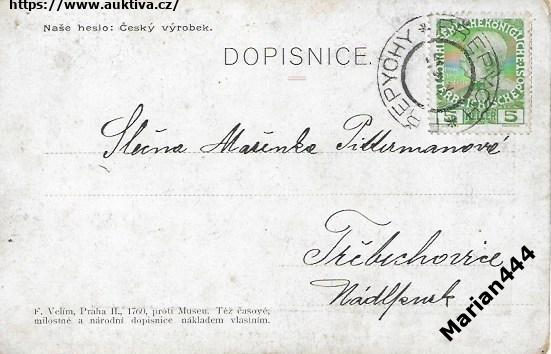 https://www.auktiva.cz/
Naše heslo: Český výrobek.
DOPISNICE.
ŘEPYOHY * ŘEPY
5 HELLER 5
Slečna Mařenka Pittermanová
Třebichovice
F. Velím, Praha II., 1760, proti Museu. Též časové,
milostné a národní dopisnice nákladem vlastním.
Marian444